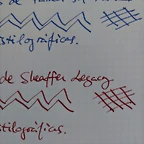 estilográficas.
de Sheaffer Legacy
estilográficas.